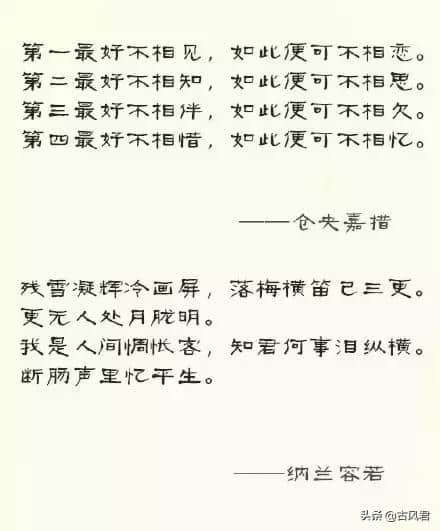 第一最好不相见，如此便可不相恋。
第二最好不相知，如此便可不相思。
第三最好不相伴，如此便可不相欠。
第四最好不相惜，如此便可不相忆。
——仓央嘉措
残雪凝辉冷画屏，落梅横笛已三更。
更无人处月胧明。
我是人间惆怅客，知君何事泪纵横。
断肠声里忆平生。
——纳兰容若
头条 @古风君